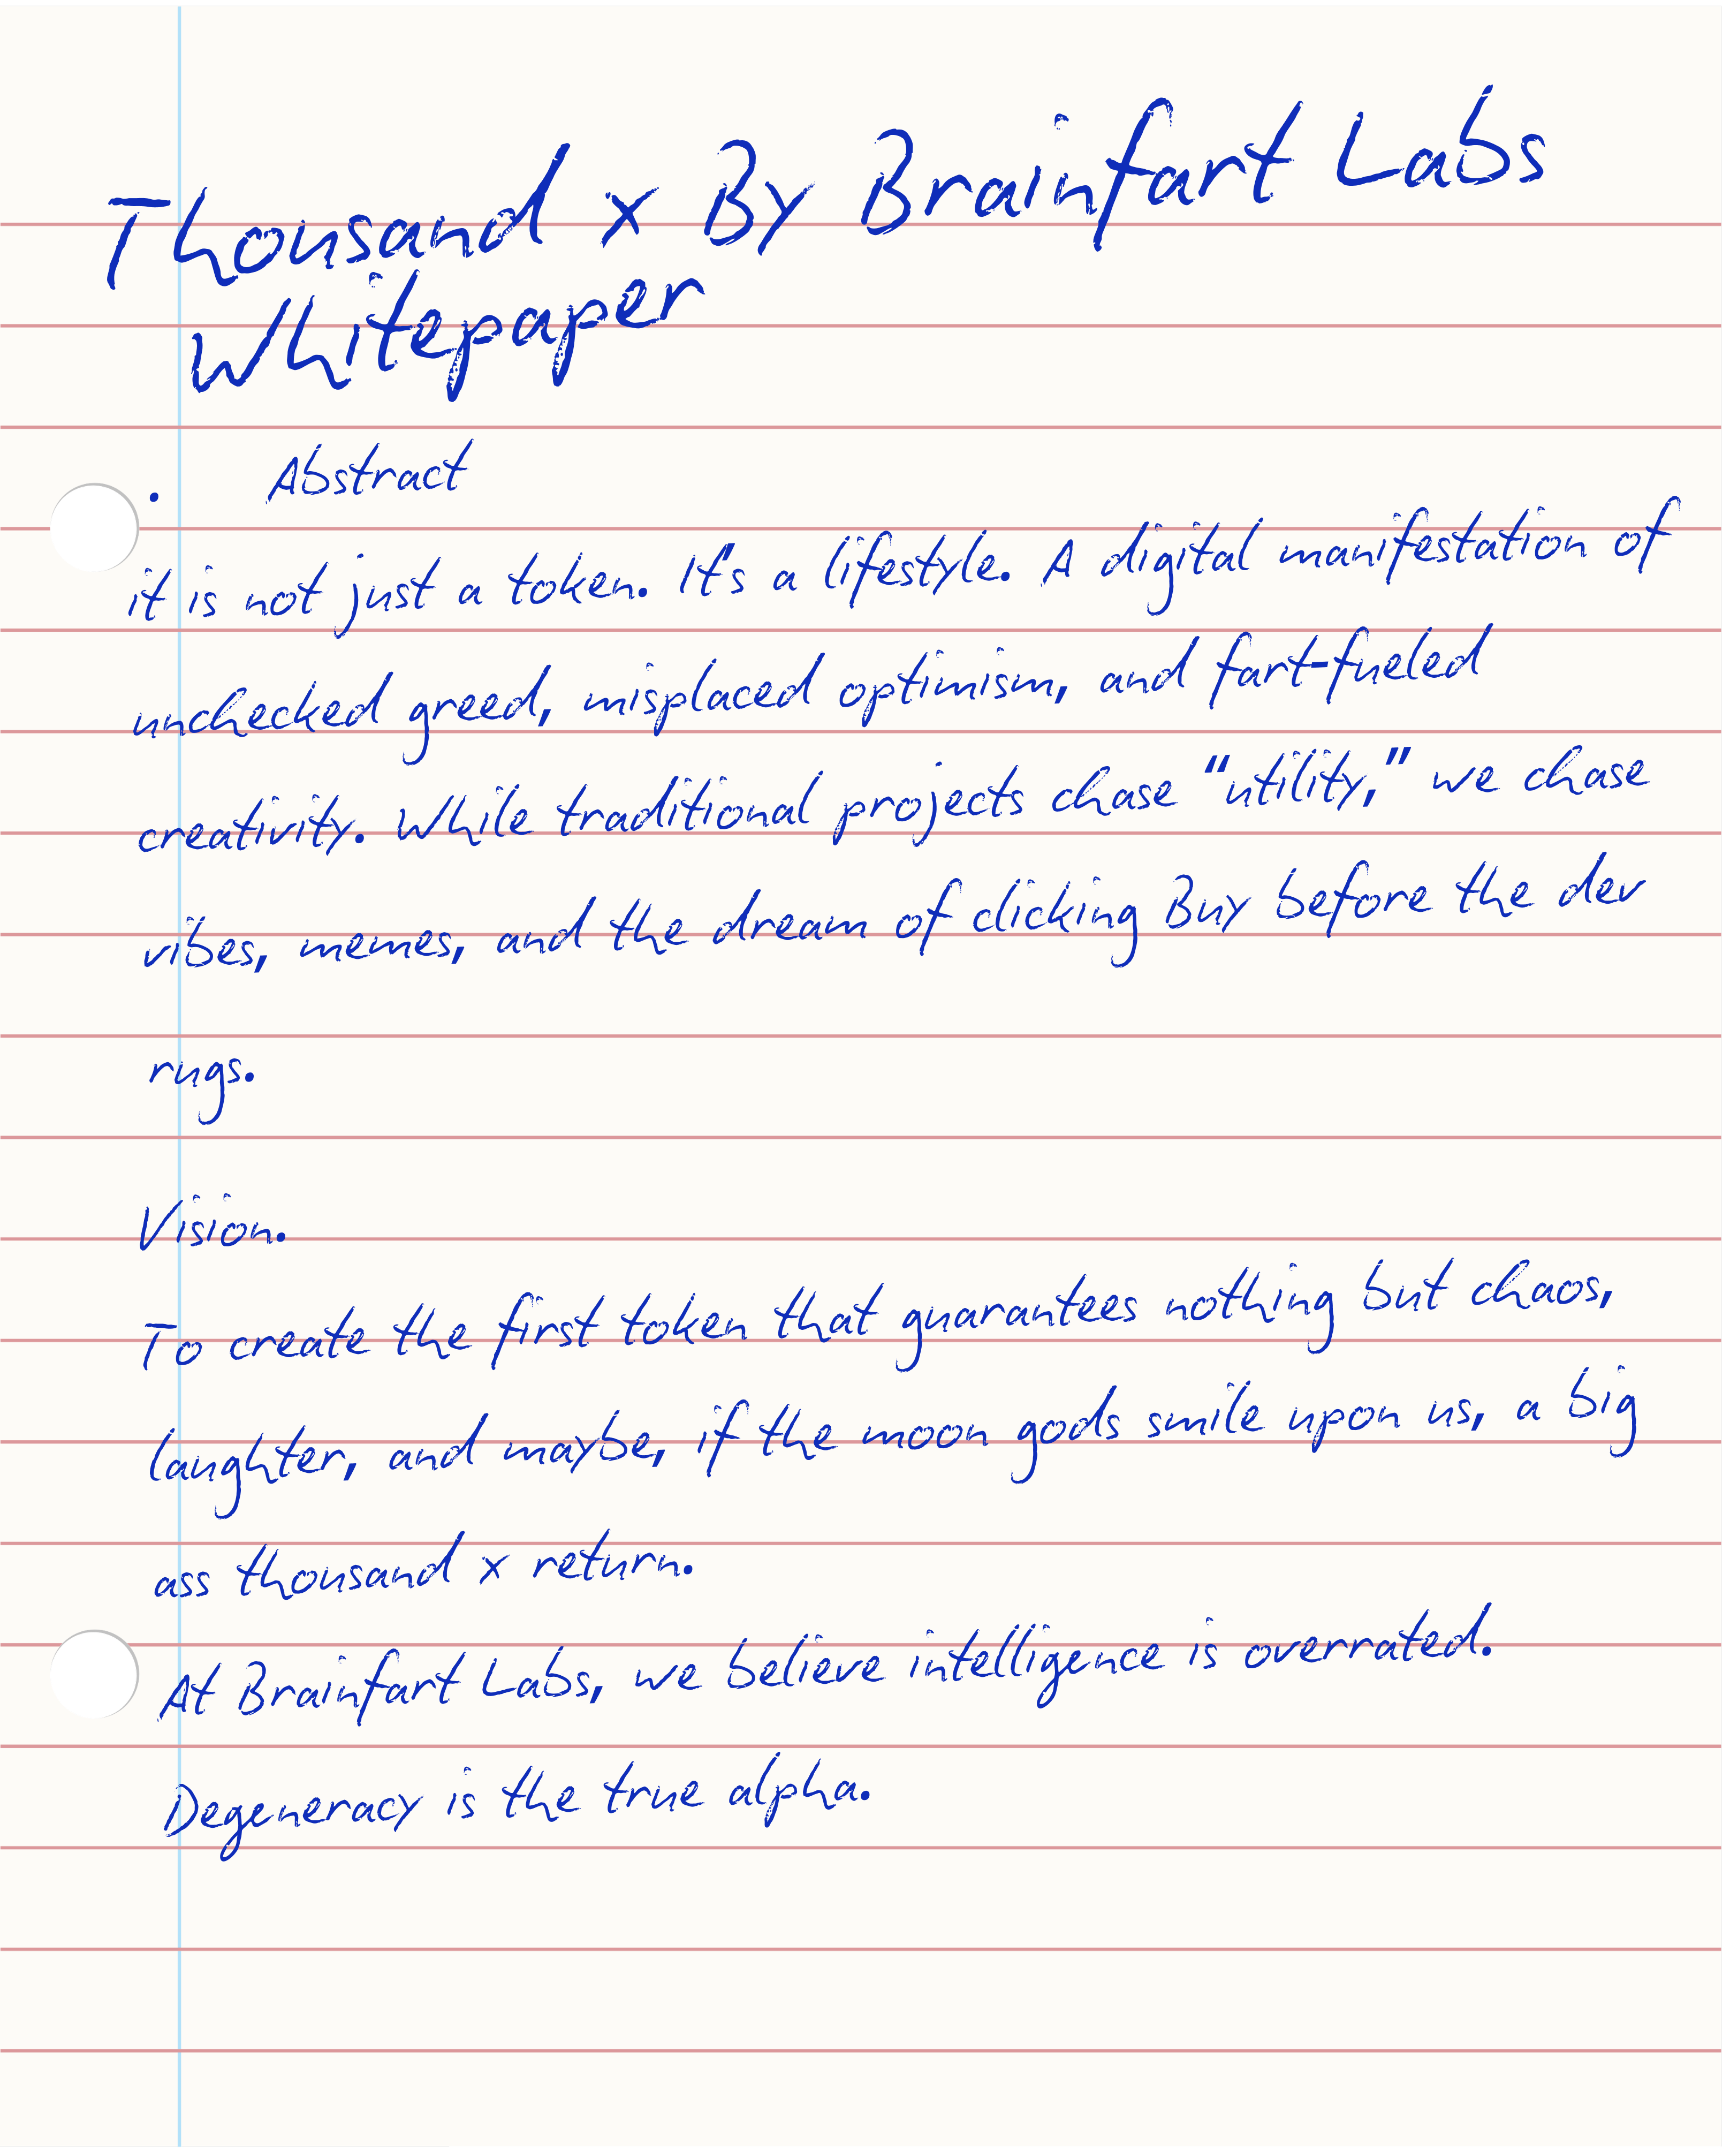 Thousand x By Brainfart Labs
Whitepaper
. Abstract
it is not just a token. It's a lifestyle. A digital manifestation of
unchecked greed, misplaced optimism, and fart-fueled
creativity. While traditional projects chase “utility,” we chase
vibes, memes, and the dream of clicking Buy before the dev
rugs.
Vision.
To create the first token that guarantees nothing but chaos,
laughter, and maybe, if the moon gods smile upon us, a big
ass thousand x return.
At Brainfart Labs, we believe intelligence is overrated.
Degeneracy is the true alpha.